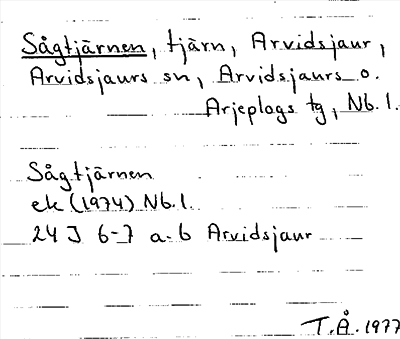 Sågtjärnen, tjärn, Arvidsjaur,
Arvidsjaurs sn, Arvidsjaurs o.
Arjeplogs tg, Nb.l.
Sågtjärnen
ek (1974) Nb.l.
24 J 6-7 a-b Arvidsjaur
T.Å. 1977